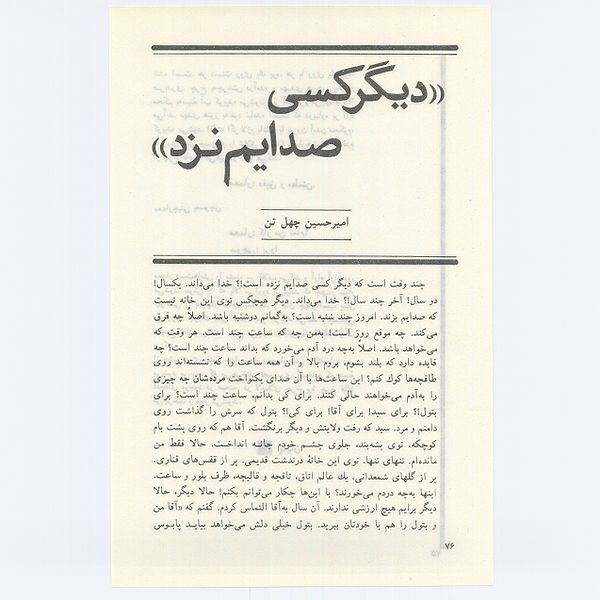 «دیگر کسی
صدایم نزد»
امیرحسین چهل تن
چند وقت است که دیگر کسی صدایم نزده است؟! خدا می‌داند. یکسال!
دو سال! آخر چند سال!؟ خدا می‌داند. دیگر هیچکس توی این خانه نیست
که صدایم بزند. امروز چند شنبه است؟ به‌گمانم دوشنبه باشد. اصلاً چه فرق
می‌کند. چه موقع روز است! به‌من چه که ساعت چند است. هر وقت که
می‌خواهد باشد. اصلاً به‌چه درد آدم می‌خورد که بداند ساعت چند است؟ چه
فایده دارد که بلند بشوم، بروم بالا و آن همه ساعت را که نشسته‌اند روی
طاقچه‌ها کوك کنم؟ این ساعت‌ها با آن صدای یکنواخت مرده‌شان چه چیزی
را به‌آدم می‌خواهند حالی کنند. برای کی بدانم، ساعت چند است؟ برای
بتول!؟ برای سید! برای آقا! برای کی!؟ بتول که سرش را گذاشت روی
دامنم و مرد. سید که رفت ولایتش و دیگر برنگشت. آقا هم که روی پشت بام
کوچکه، توی پشه‌بند. جلوی چشم خودم چانه انداخت. حالا فقط من
مانده‌ام. تنهای تنها. توی این خانهٔ درندشت قدیمی. پر از قفس‌های قناری.
پر از گلهای شمعدانی، یك عالم اتاق. تاقچه و قالیچه، ظرف بلور و ساعت.
اینها به‌چه دردم می‌خورند؟ با این‌ها چکار می‌توانم بکنم! حالا دیگر، حالا
دیگر برایم هیچ ارزشی ندارند. آن سال به‌آقا التماس کردم. گفتم که «آقا من
و بتول را هم با خودتان ببرید. بتول خیلی دلش می‌خواهد بیاید پابوس
۷۶